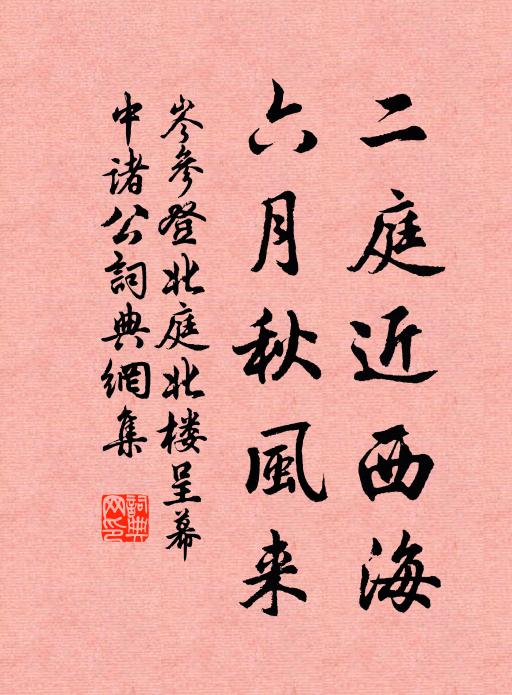 二庭近西海
六月秋風来
岑參登北庭北楼呈幕
中诸公詞典網集
詞典
网印